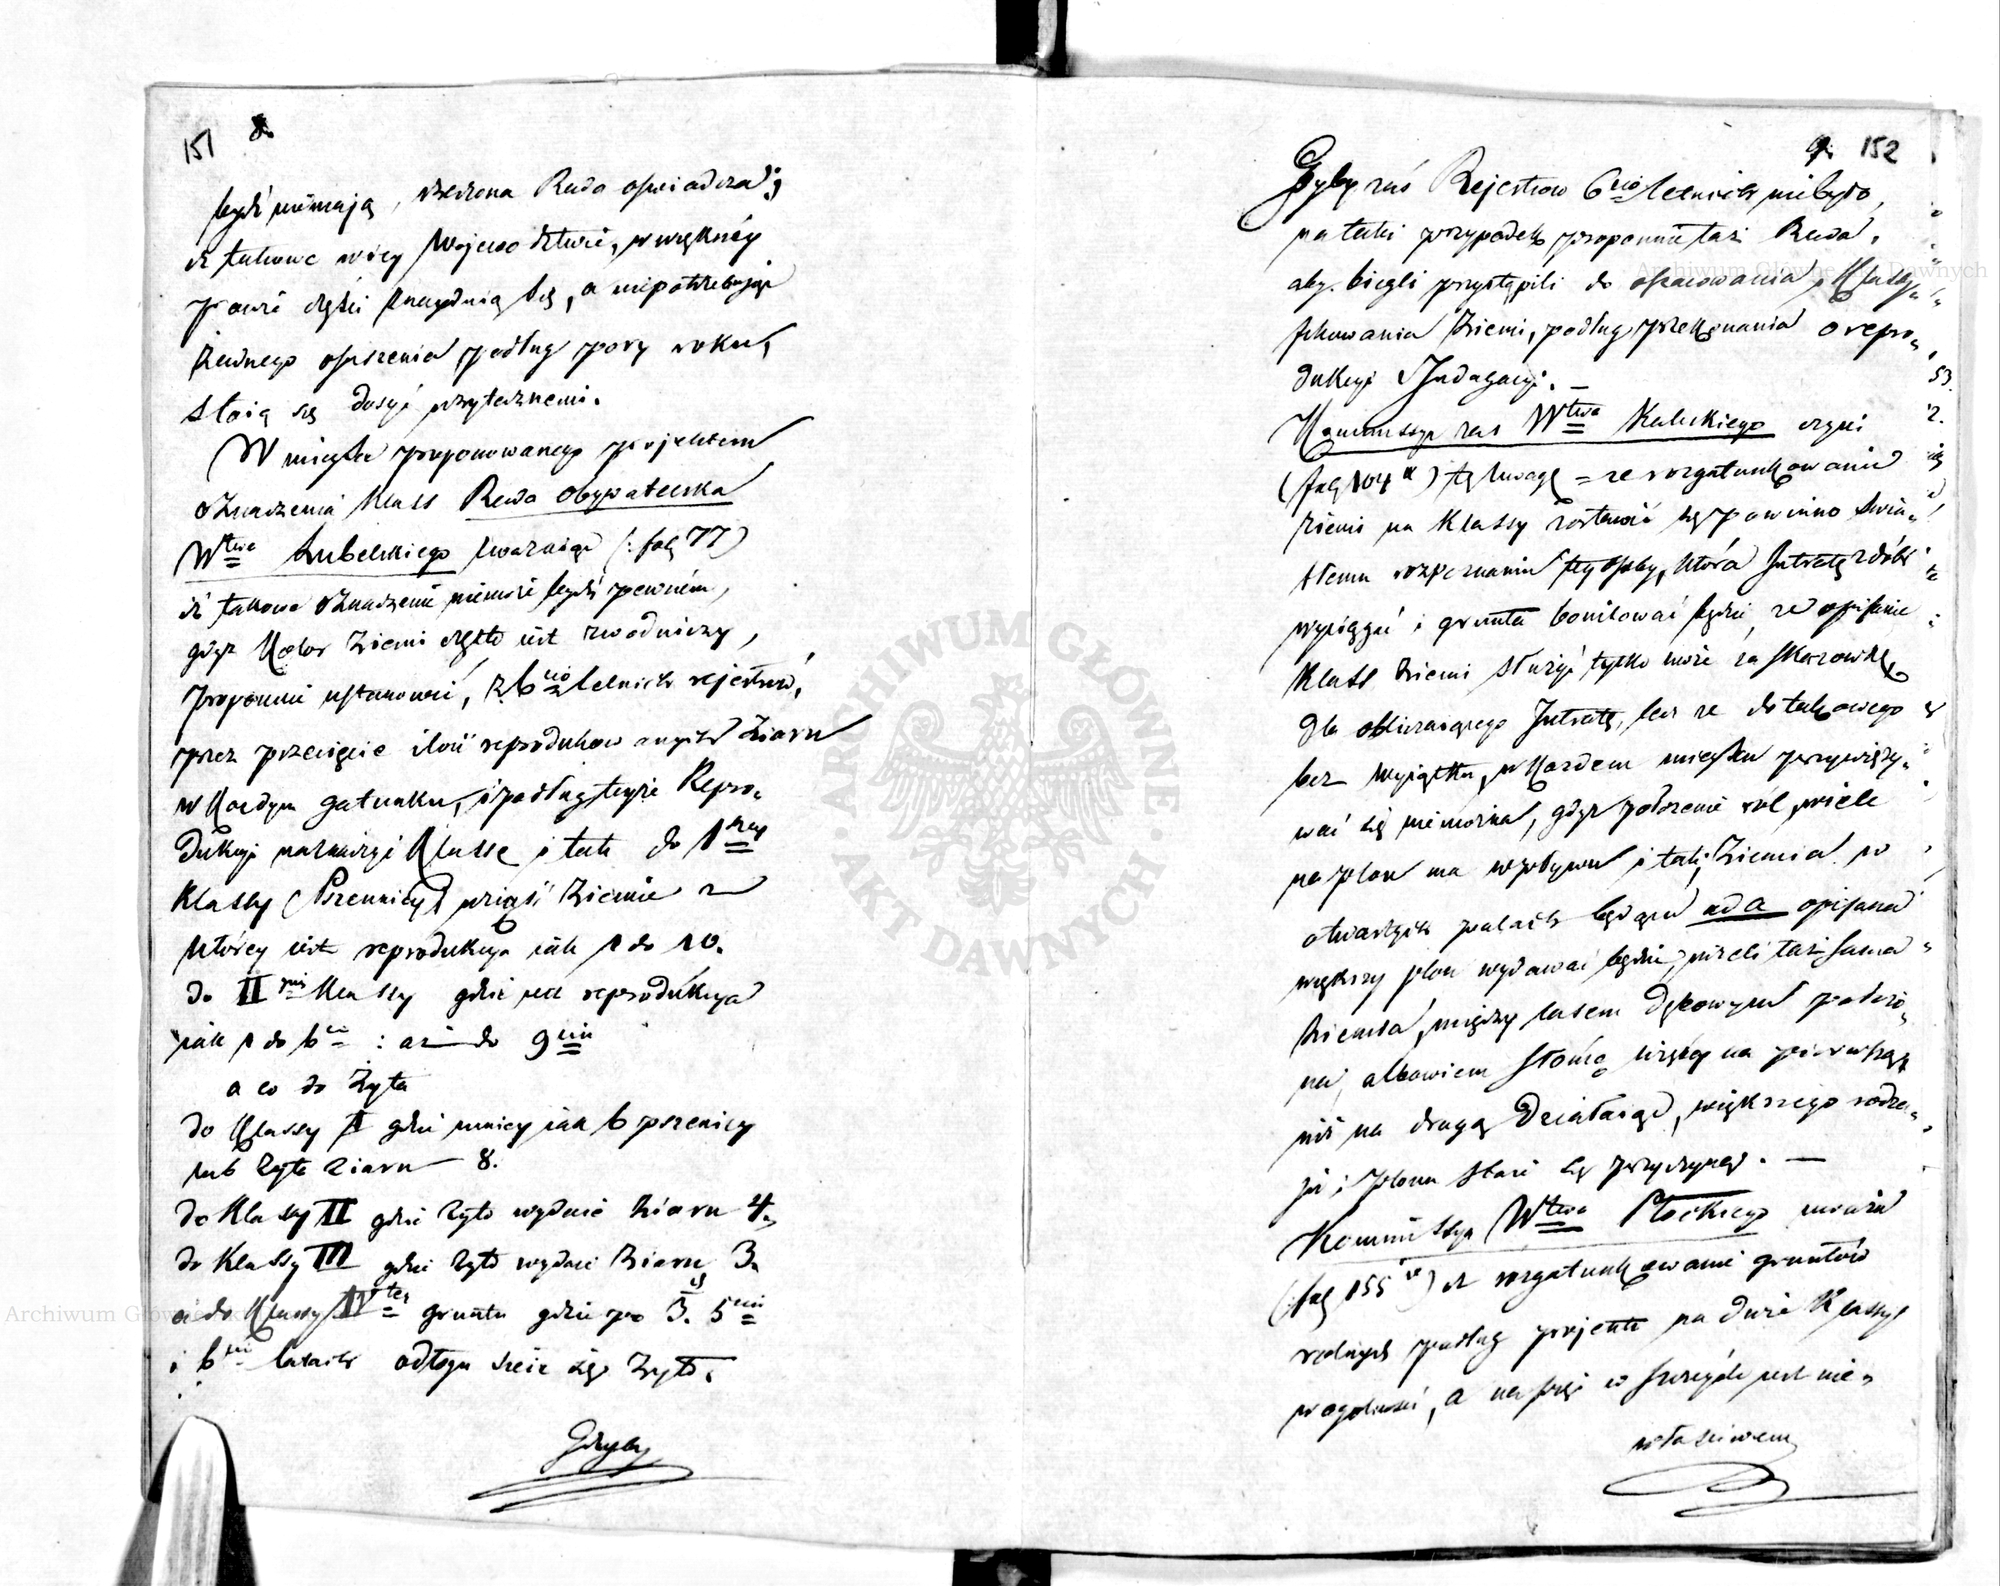 151 8.
bydź niemają, rzeczona Rada oświadcza;
iż takowe w tey Województwie, w większéy
prawie części znayduią się, a niepotrzebując
żadnego opiszenia podług pory roku,
staią się dosyć pożytecznemi.
W mieysce proponowanego projektem
oznaczenia Klass Rada Obywatelska
Wtwa Lubelskiego uważaiąc (: fol 77)
iż takowe oznaczenie niemoże bydź pewném,
gdyż Kolor Ziemi często iest zwodniczy,
proponuie ustanowić, z 6cio letnich rejestrów,
przez przecięcie ilość reprodukowanych Ziarn
w Każdym gatunku, i podług teyże Repro„
dukcyi naznaczyć Klassę i tak do 1szey
Klassy (Pszenney) wziąść Ziemie z
którey iest reprodukcya iak 1 do 10.
do II giej Klassy gdzie jest reprodukcya
iak 1 do 6ciu : aż do 9ciu
a co do Żyta
do Klassy I gdzie mniey iak 6 pszenicy
lub Żyta Ziarn 8.
do Klassy II gdzie Żyto wydaie Ziarn 4.
do Klassy III gdzie Żyto wydaie Ziarn 3.
a do Klassy IVtey gruntu gdzie po 3. 5ciu
i 6ciu latach odłogu sieie się Żyto.
Gdyby
9. 152
Gdyby zaś Rejestrów 6cio letnich niebyło,
na taki przypadek proponuie taż Rada,
aby biegli przystąpili do oszacowania i Klassy„
fikowania Ziemi, podług przekonania o repro„
dukcyi i Indagacyi. —
Kommissya zaś Wtwa Kaliskiego czyni
(fol 104) tę Uwagę = że rozgatunkowanie
Ziemi na Klassy zostawić się powinno świa„
tłemu rozpoznaniu tey Osoby, która Intratę z dóbr
wyciągać i grunta bonitować będzie, że opisanie
Klass Ziemi służyć tylko może za skazówkę
dla obliczaiącego Intratę, lecz że do takowego
bez wyiątku, w Każdem mieyscu przywięzy„
wać się niemożna, gdyż położenie ról wiele
na plon ma wpływu i tak; Ziemia w
otwartych polach będąca ad a opisana
większy plon wydawać będzie, niżeli taż sama
Ziemia, między lasem Dębowym położo„
na, albowiem Słońce więcey na pierwszą
niż na drugą Działaiąc, większego rodza„
ju i Plonu staie się przyczyną. —
Kommissya Wtwa Płockiego uważa
(fol 155) iż rozgatunkowanie gruntów
rolnych podług projektu na dwie Klassy
w ogólności, a na pięć w szczególe jest nie„
właściwem
ARCHIWUM GŁÓWNE
AKT DAWNYCH